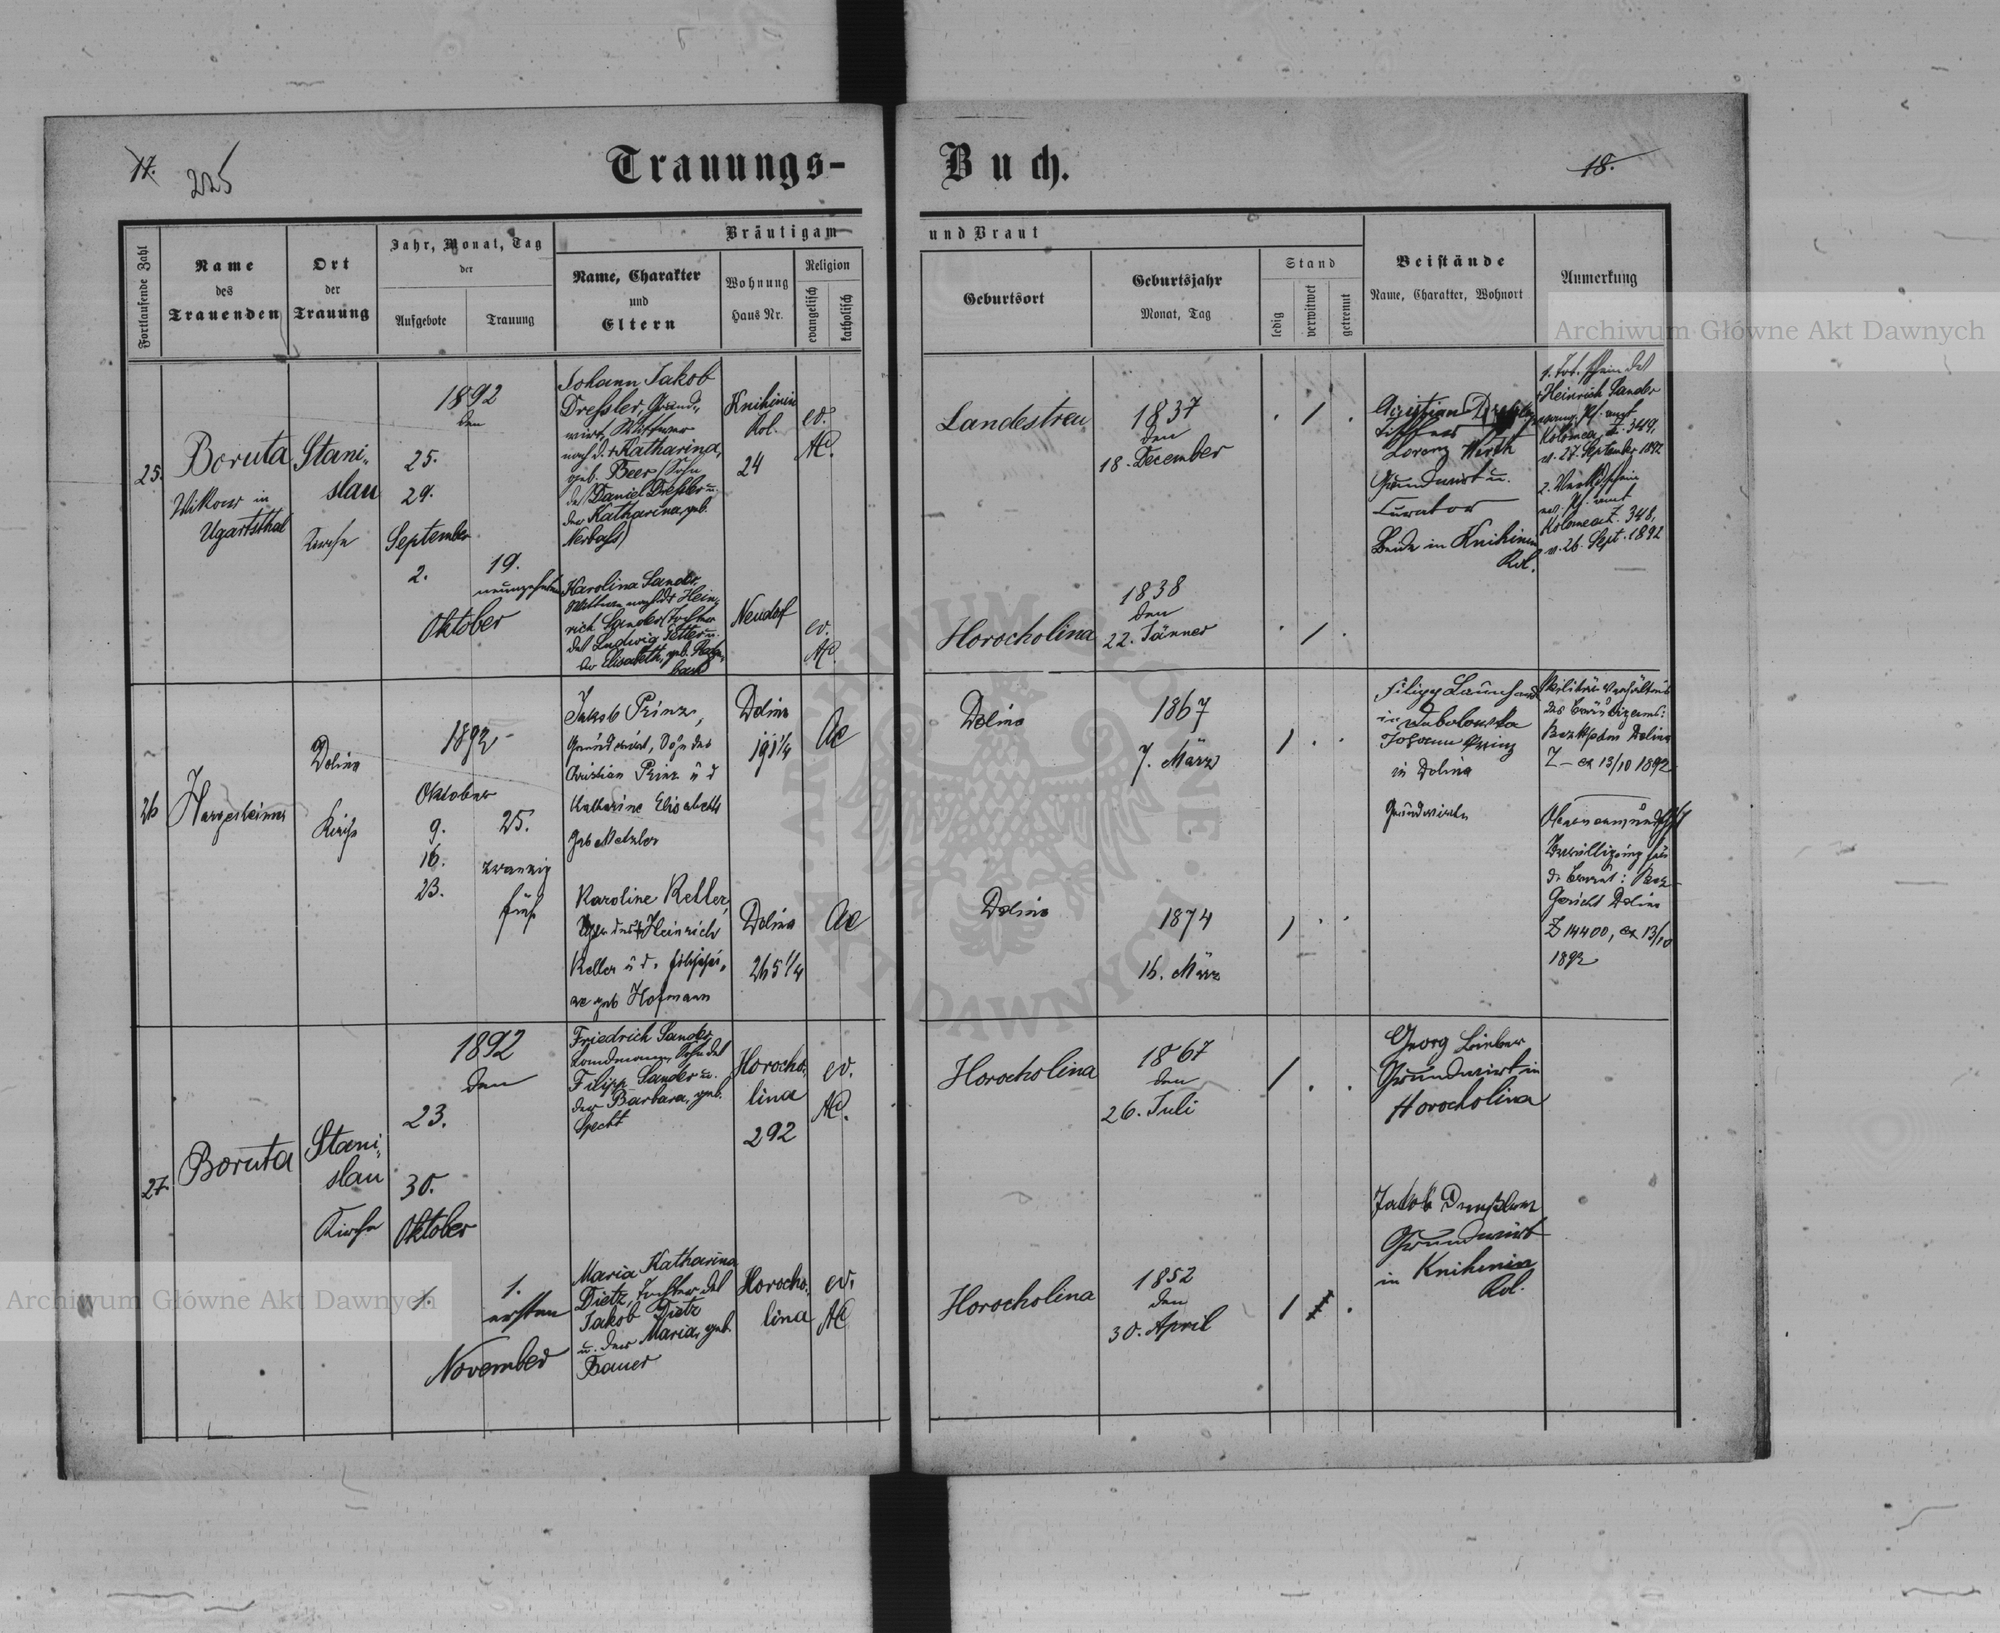 17.
225
Trauungs-
Buch.
18.
Fortlaufende Zahl
Name
des
Trauenden
Ort
der
Trauung
Jahr, Monat, Tag
der
Aufgebote
Trauung
Bräutigam
und Braut
Name, Charakter
und
Eltern
Wohnung
Haus Nr.
Religion
evangelisch
katholisch
Geburtsort
Geburtsjahr
Monat, Tag
Stand
ledig
verwitwet
getrennt
Beistände
Name, Charakter, Wohnort
Anmerkung
Archiwum Główne Akt Dawnych
25.
Boruta
Vikar in
Ugartsthal
Stani-
slau
Kirche
1892
den
25.
29.
September
2.
19.
neunzehnten
Oktober
Johann Jakob
Dreßler, Grund-
wirt, Wittwer
nach d. + Katharina,
geb. Beer, Sohn
des Daniel Dreßler u.
der Katharina, geb.
Knihinin
Kol.
24
ev.
AC.
Landestreu
1837
den
18. December
Lorenz Werth
Grundwirt u.
Curator
Beide in Knihinin
Kol.
Heinrich Sander
Kolomea, Z. 349,
v. 27. September 1892
2.
Kolomea Z. 348,
v. 26. Sept. 1892
Karolina Sander,
Wittwe nach d. + Hein-
rich Sander, Tochter
des Ludwig
der Elisabeth, geb.
Neudorf
ev.
AC.
Horocholina
1838
den
22. Jänner
26
Hargesheimer
Dolina
Kirche
1892
Oktober
9.
16.
23.
25.
zwanzig
fünf
Jakob Prinz,
Grundwirt, Sohn des
Christian Prinz u d
Katharine Elisabeth
geb Metzler
Dolina
191 1/4
AC
Dolina
1867
7. März
Filipp Launhardt
in
Johann Prinz
in Dolina
Grundwirte
Militär Verhältnis
des Bräutigams:
Dolina
Z — ex 13/10 1892
Karoline Keller,
des + Heinrich
Keller u d.
geb Hofmann
Dolina
265 1/4
AC
Dolina
1874
16. März
Bewilligung für
d Braut: Bez
Gericht Dolina
Z 14400, ex 13/10
1892
27.
Boruta
Stani-
slau
Kirche
1892
den
23.
30.
Oktober
1.
1.
ersten
November
Friedrich Sander,
Landmann, Sohn des
Filipp Sander u.
der Barbara, geb.
Specht
Horocho-
lina
292
ev.
AC.
Horocholina
1867
den
26. Juli
Georg Bieber
Grundwirt in
Horocholina
Jakob
Grundwirt
in Knihinin
Kol.
Maria Katharina
Dietz, Tochter des
Jakob Dietz
u. der Maria, geb.
Bauer
Horocho-
lina
ev.
AC
Horocholina
1852
den
30. April
Archiwum Główne Akt Dawnych
ARCHIWUM GŁÓWNE AKT DAWNYCH